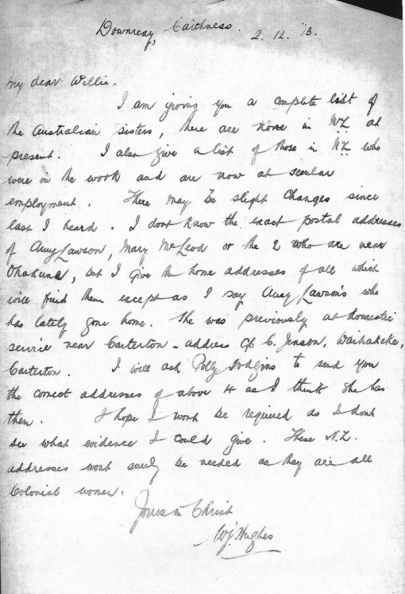 Downreay, Caithness. 2.12.'13.
My dear Willie.
I am giving you a complete list of
the Australian sisters, there are none in N.Z. at
present. I also give a list of those in N.Z. who
were in the work and are now at secular
employment. There may be slight changes since
last I heard. I dont know the exact postal addresses
of Amy Lawson, Mary McLeod or the 2 who are near
Ohakune, but I give the home addresses of all which
will find them except as I say Amy Lawson's who
has lately gone home. She was previously at domestic
service near Carterton - address c/o C. Jenson, Waihakeke,
Carterton. I will ask Polly Hodgins to send you
the correct addresses of above 4 as I think she has
them. I hope I wont be required as I dont
see what evidence I could give. These N.Z.
addresses wont surely be needed as they are all
Colonial women.
Yours in Christ
W.J. Hughes